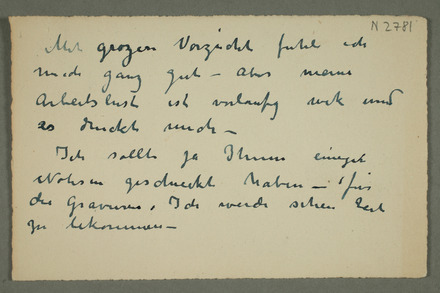 N 2781
Mit grozen Vorzicht fuhl ich
mich ganz gut – aber meine
Arbeitslust ist vorlaufig wek und
es druckt mich –
Ich sollte ja Ihnen einiges
geschieckt haben – für
die Gravuren, Ich werde sehen Zeit
zu bekommen –